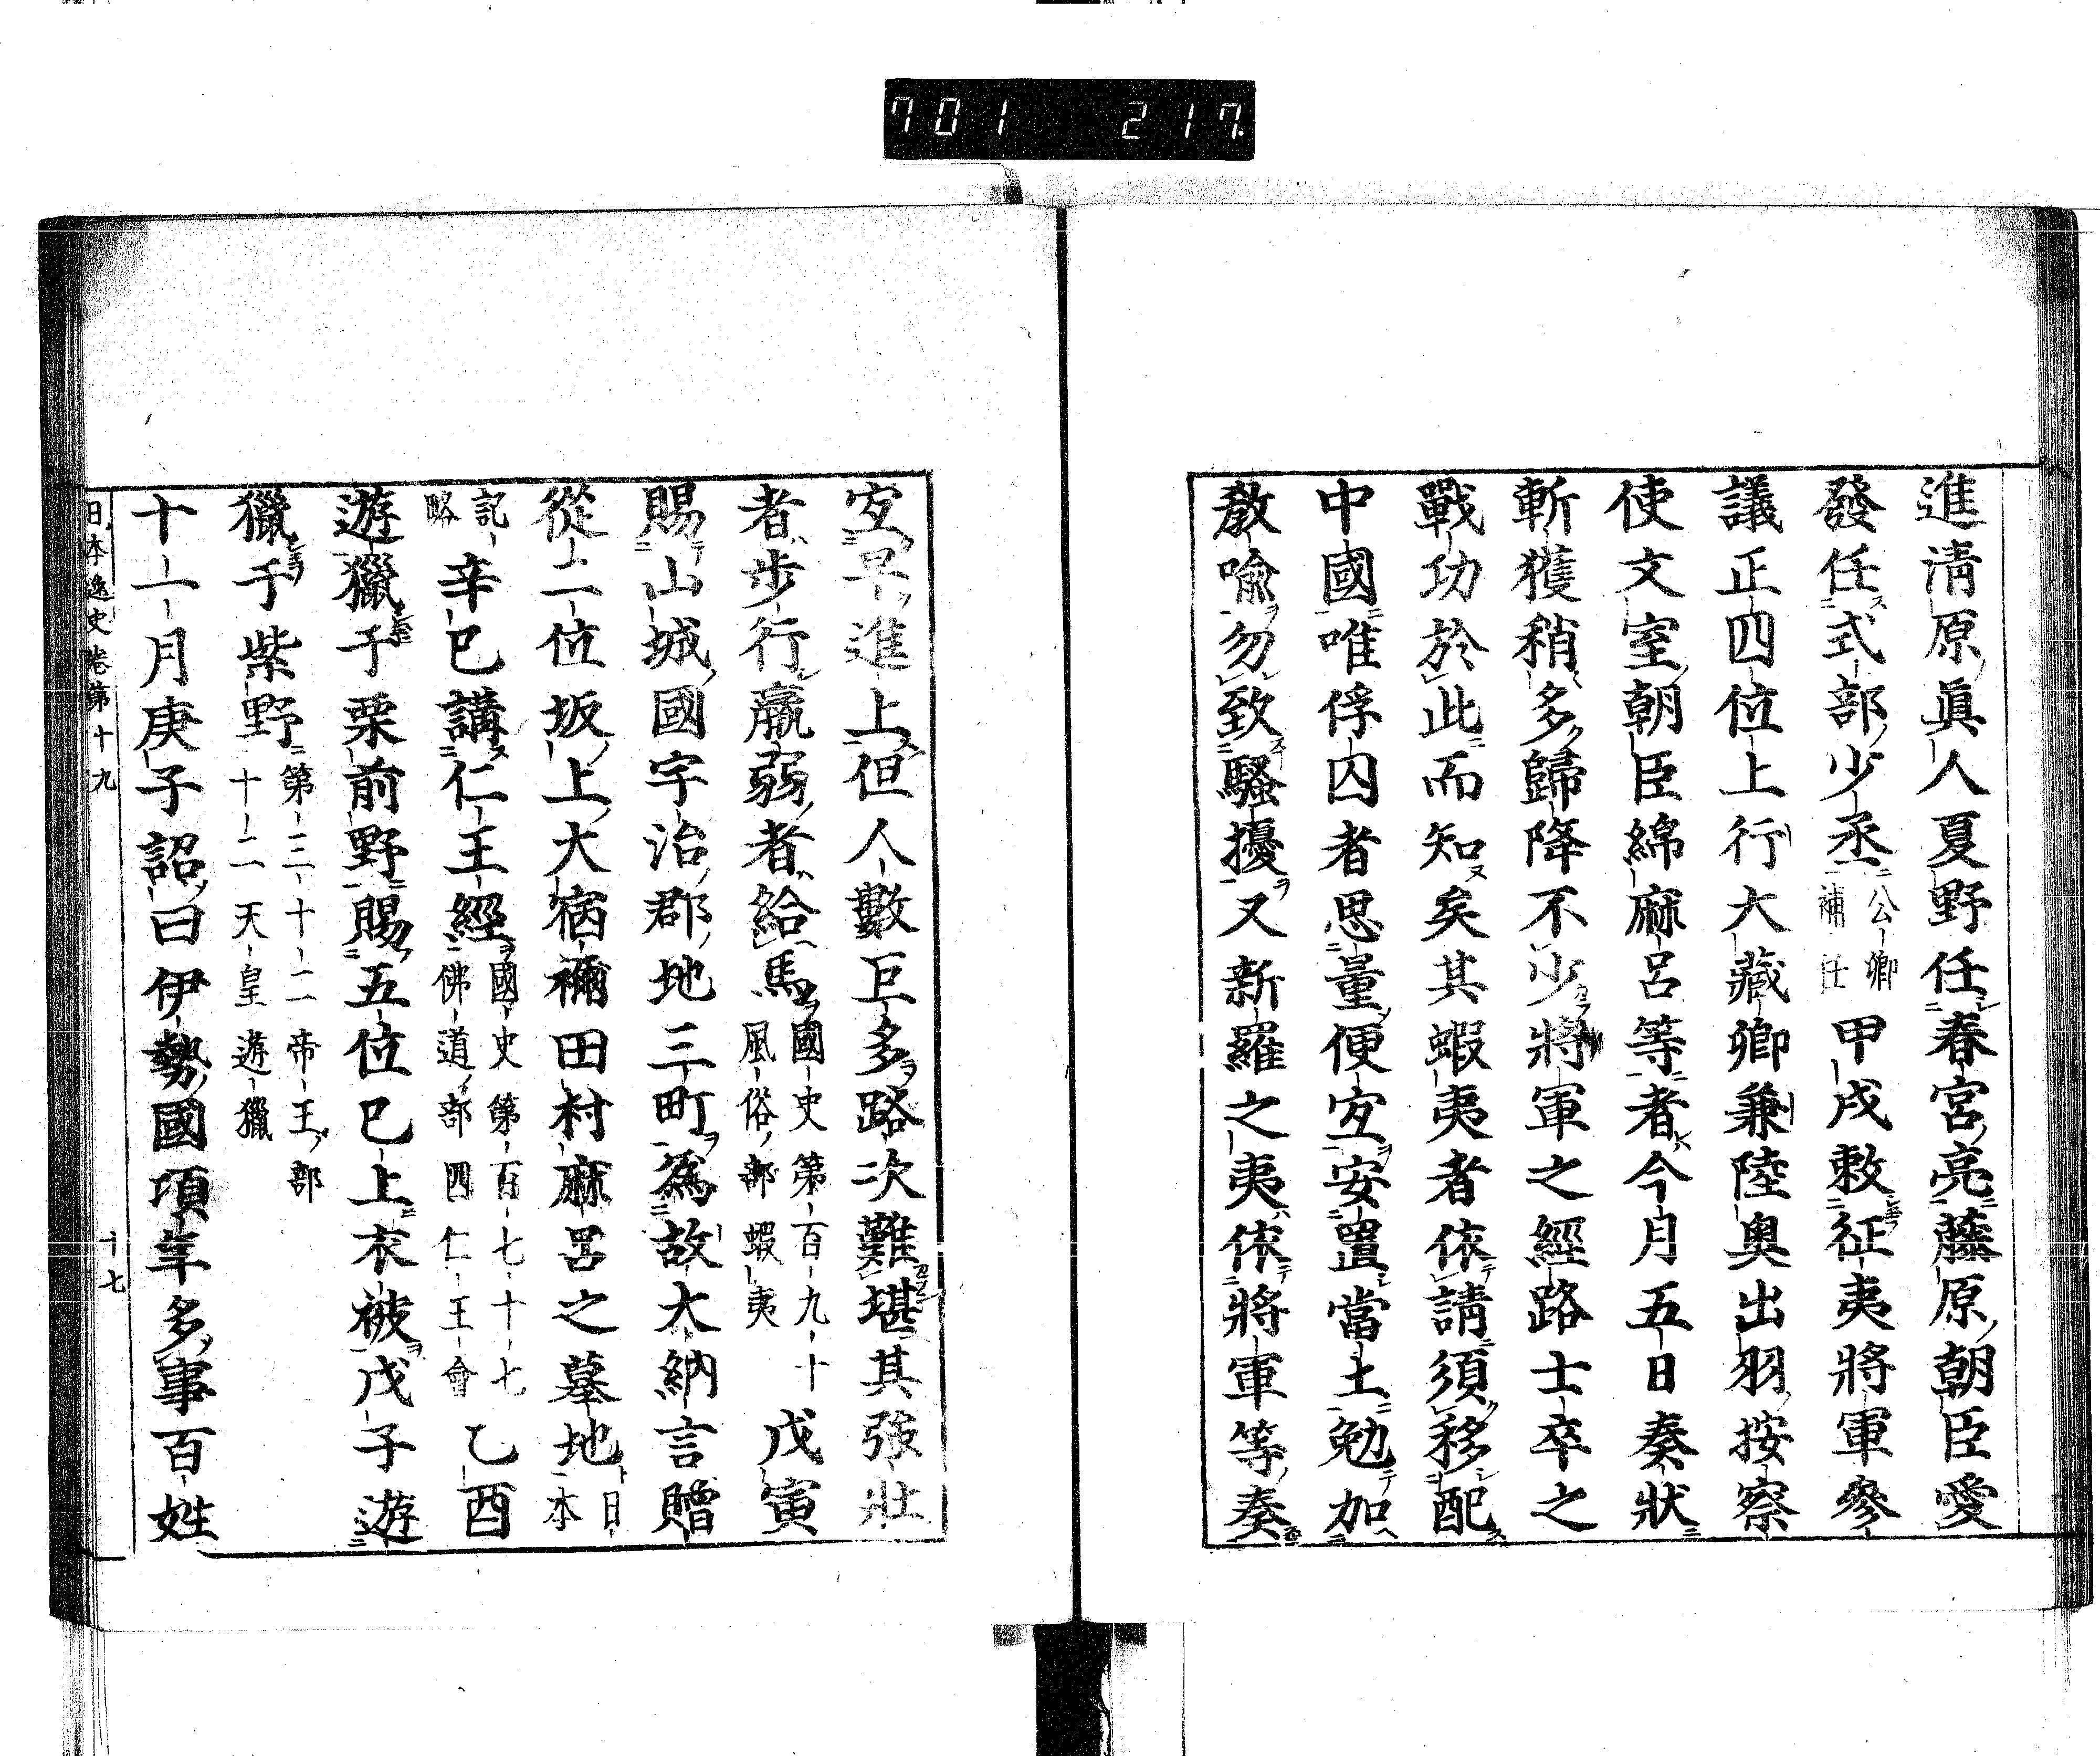 701 217
進清原眞人夏野任春宮亮藤原朝臣愛
發任式部少丞公卿補任甲戌敕征夷將軍參
議正四位上行大藏卿兼陸奧出羽按察
使文室朝臣綿麻呂等者今月五日奏狀
斬獲稍多歸降不少將軍之經路士卒之
戰功於此而知矣其蝦夷者依請須移配
中國唯俘囚者思量便宜安置當土勉加
教喩勿致騷擾又新羅之夷依將軍等奏
宜早進上但人數巨多路次難堪其强壯
者步行羸弱者給馬國史第百九十風俗部蝦夷戊寅
賜山城國宇治郡地三町爲故大納言贈
從二位坂上大宿禰田村麻呂之墓地日本
記略辛巳講仁王經國史第百七十七佛道部四仁王會乙酉
遊獵于栗前野賜五位已上衣被戊子遊
獵于紫野第三十二帝王部十二天皇遊獵
十一月庚子詔曰伊勢國項年多事百姓
日本逸史卷第十九 十七